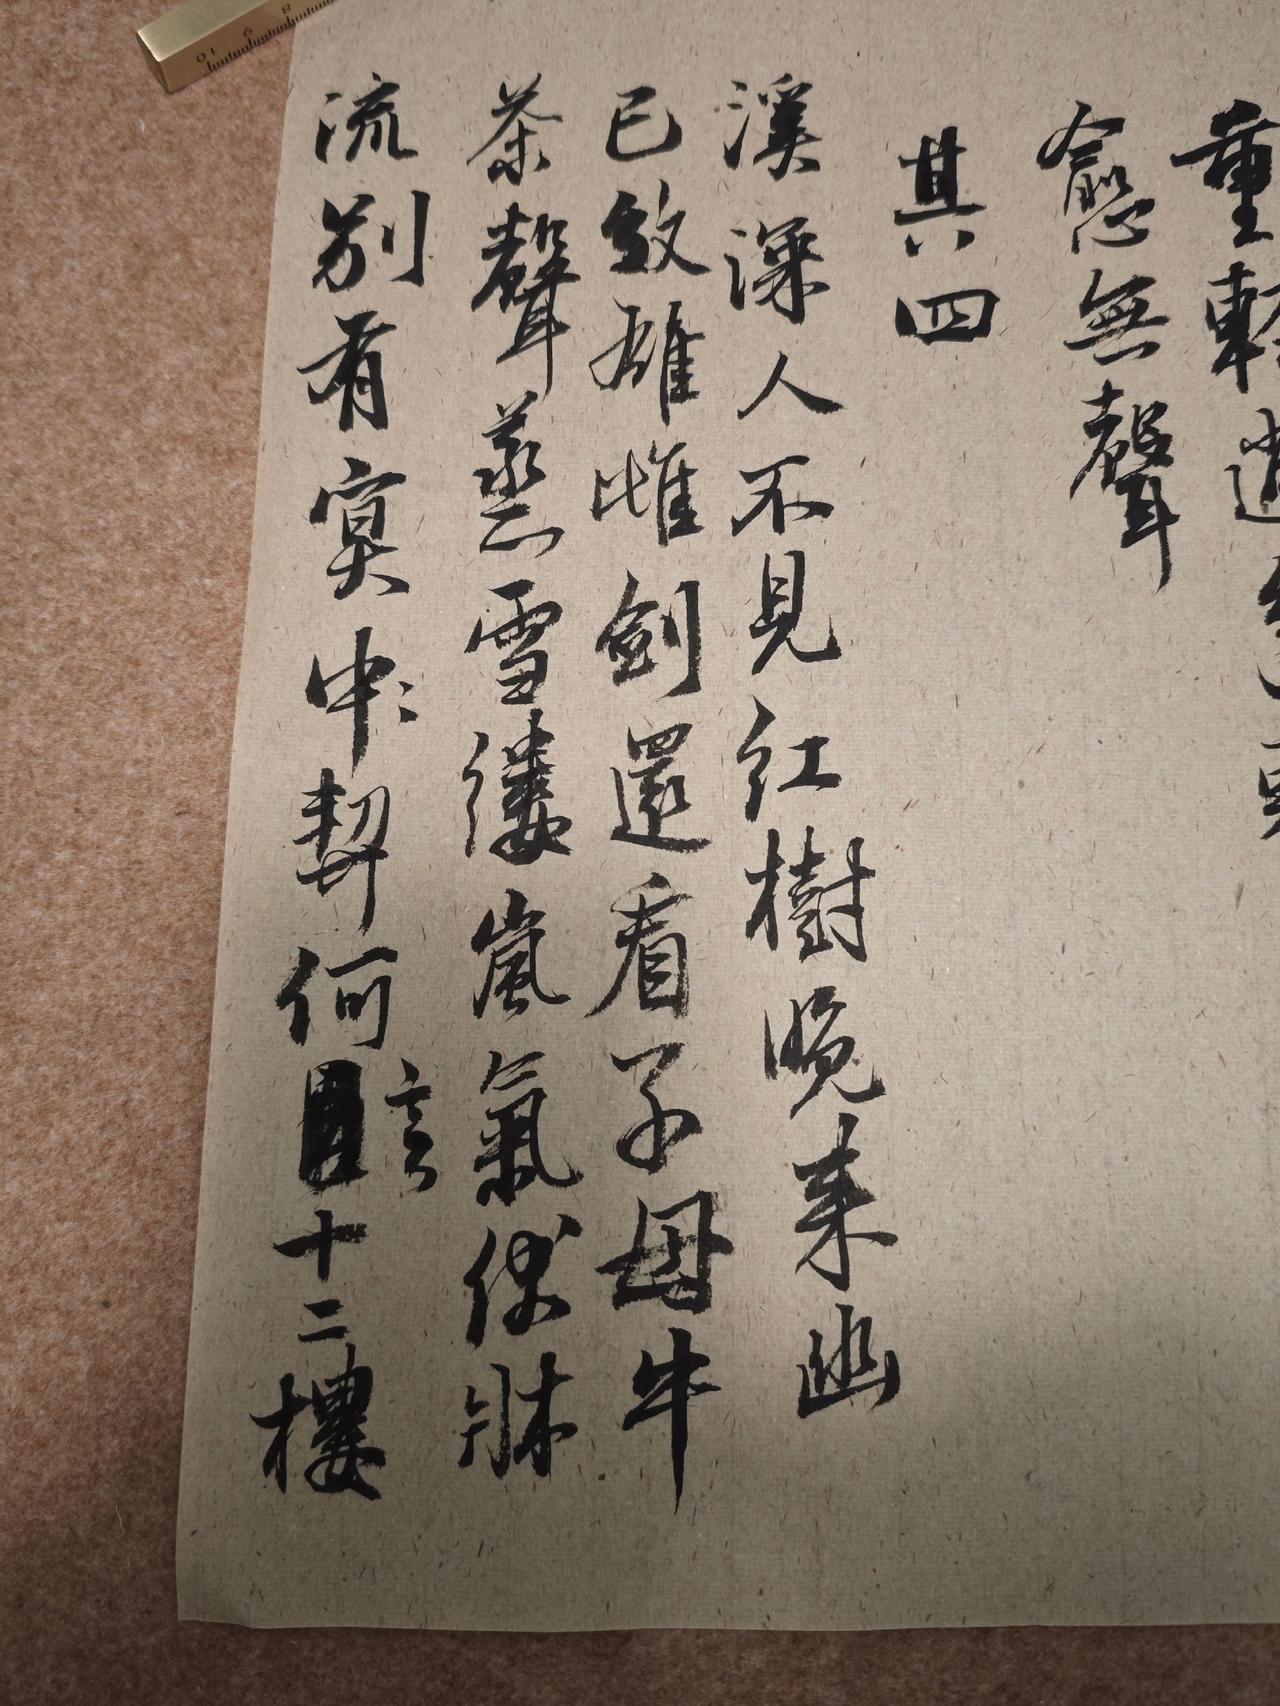 重軒
愈無聲
其四
溪深人不見紅樹晚來幽
已雄雌劍還看子母牛
茶聲蒸雪縷嵐氣牀
流別有冥中契何言十二樓
8 9 10